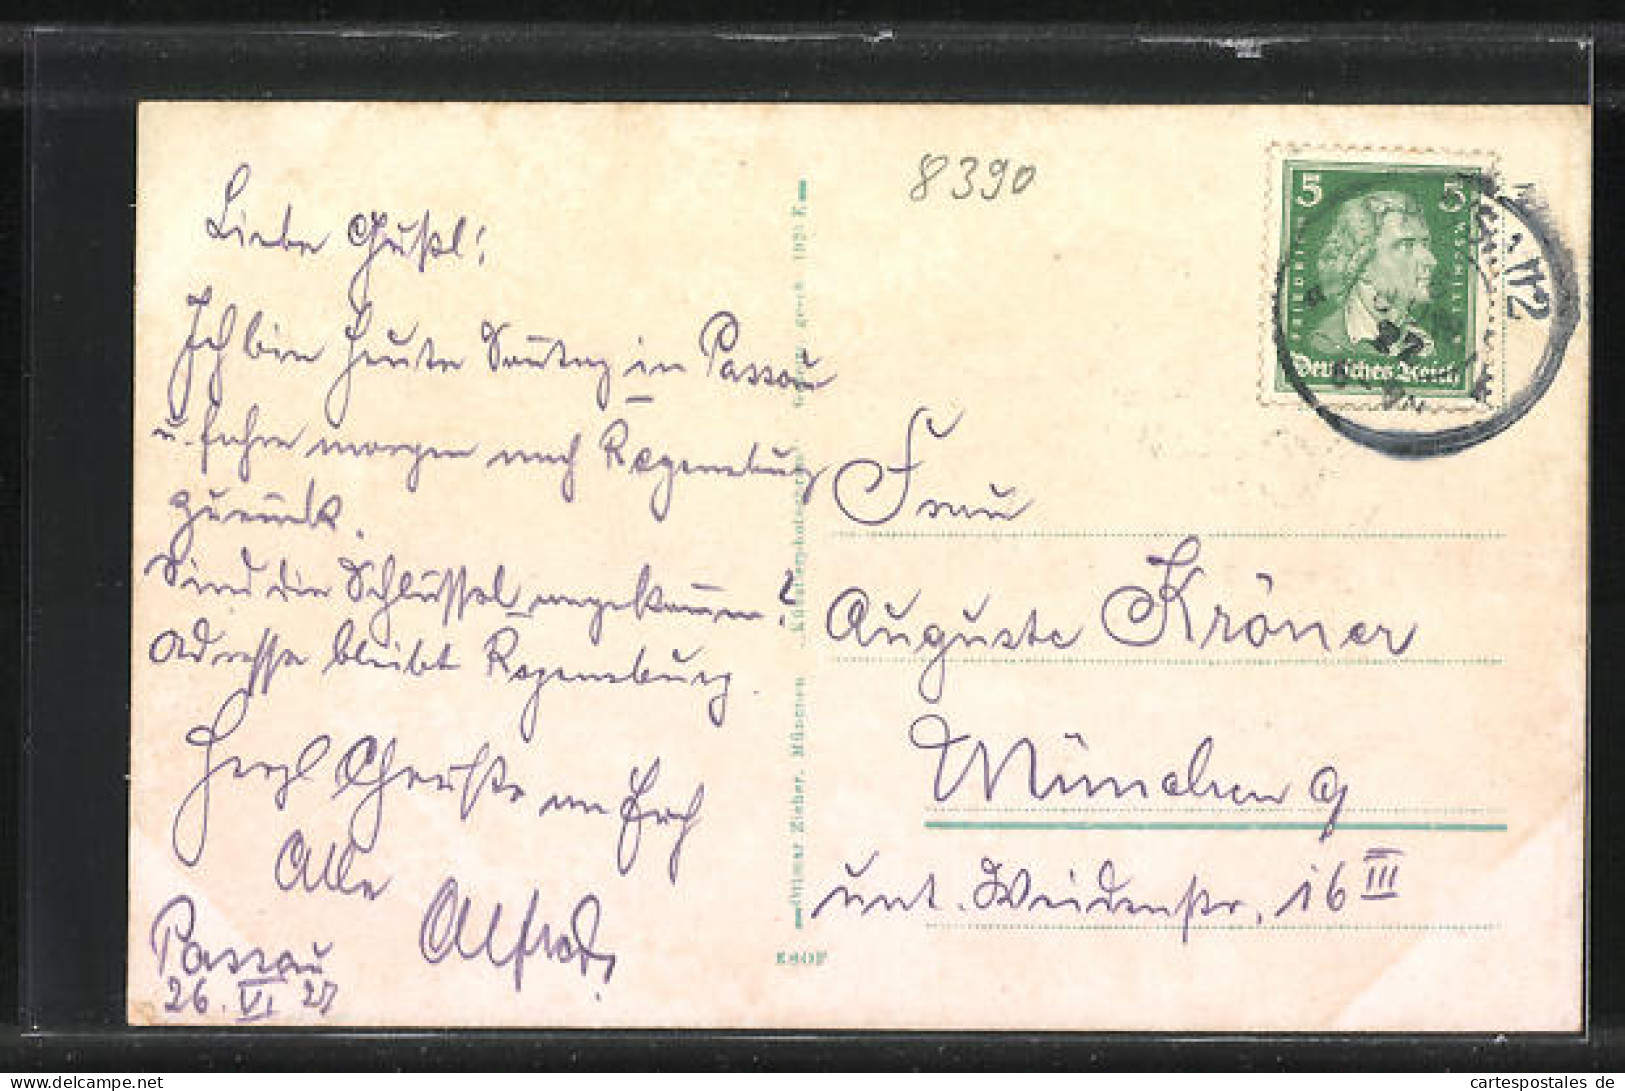 Liebe Gustl!
Ich bin heute Sonntag in Passau
u. fahre morgen nach Regensburg
zurück.
Sind die Schlüssel angekommen?
Adresse bleibt Regensburg.
Herzl Grüße an Euch
Alle
Alfred.
Passau
26. VI. 27
Ottmar Zieher, München. „Künstlerphotochrom“
gesch. 1925 E
E 8 O F
8390
5 5
FRIEDRICH V. SCHILLER
Deutsches Reich
27
Frau
Auguste Kröner
München 9
unt. Weidenstr. 16 III
cartespostales de